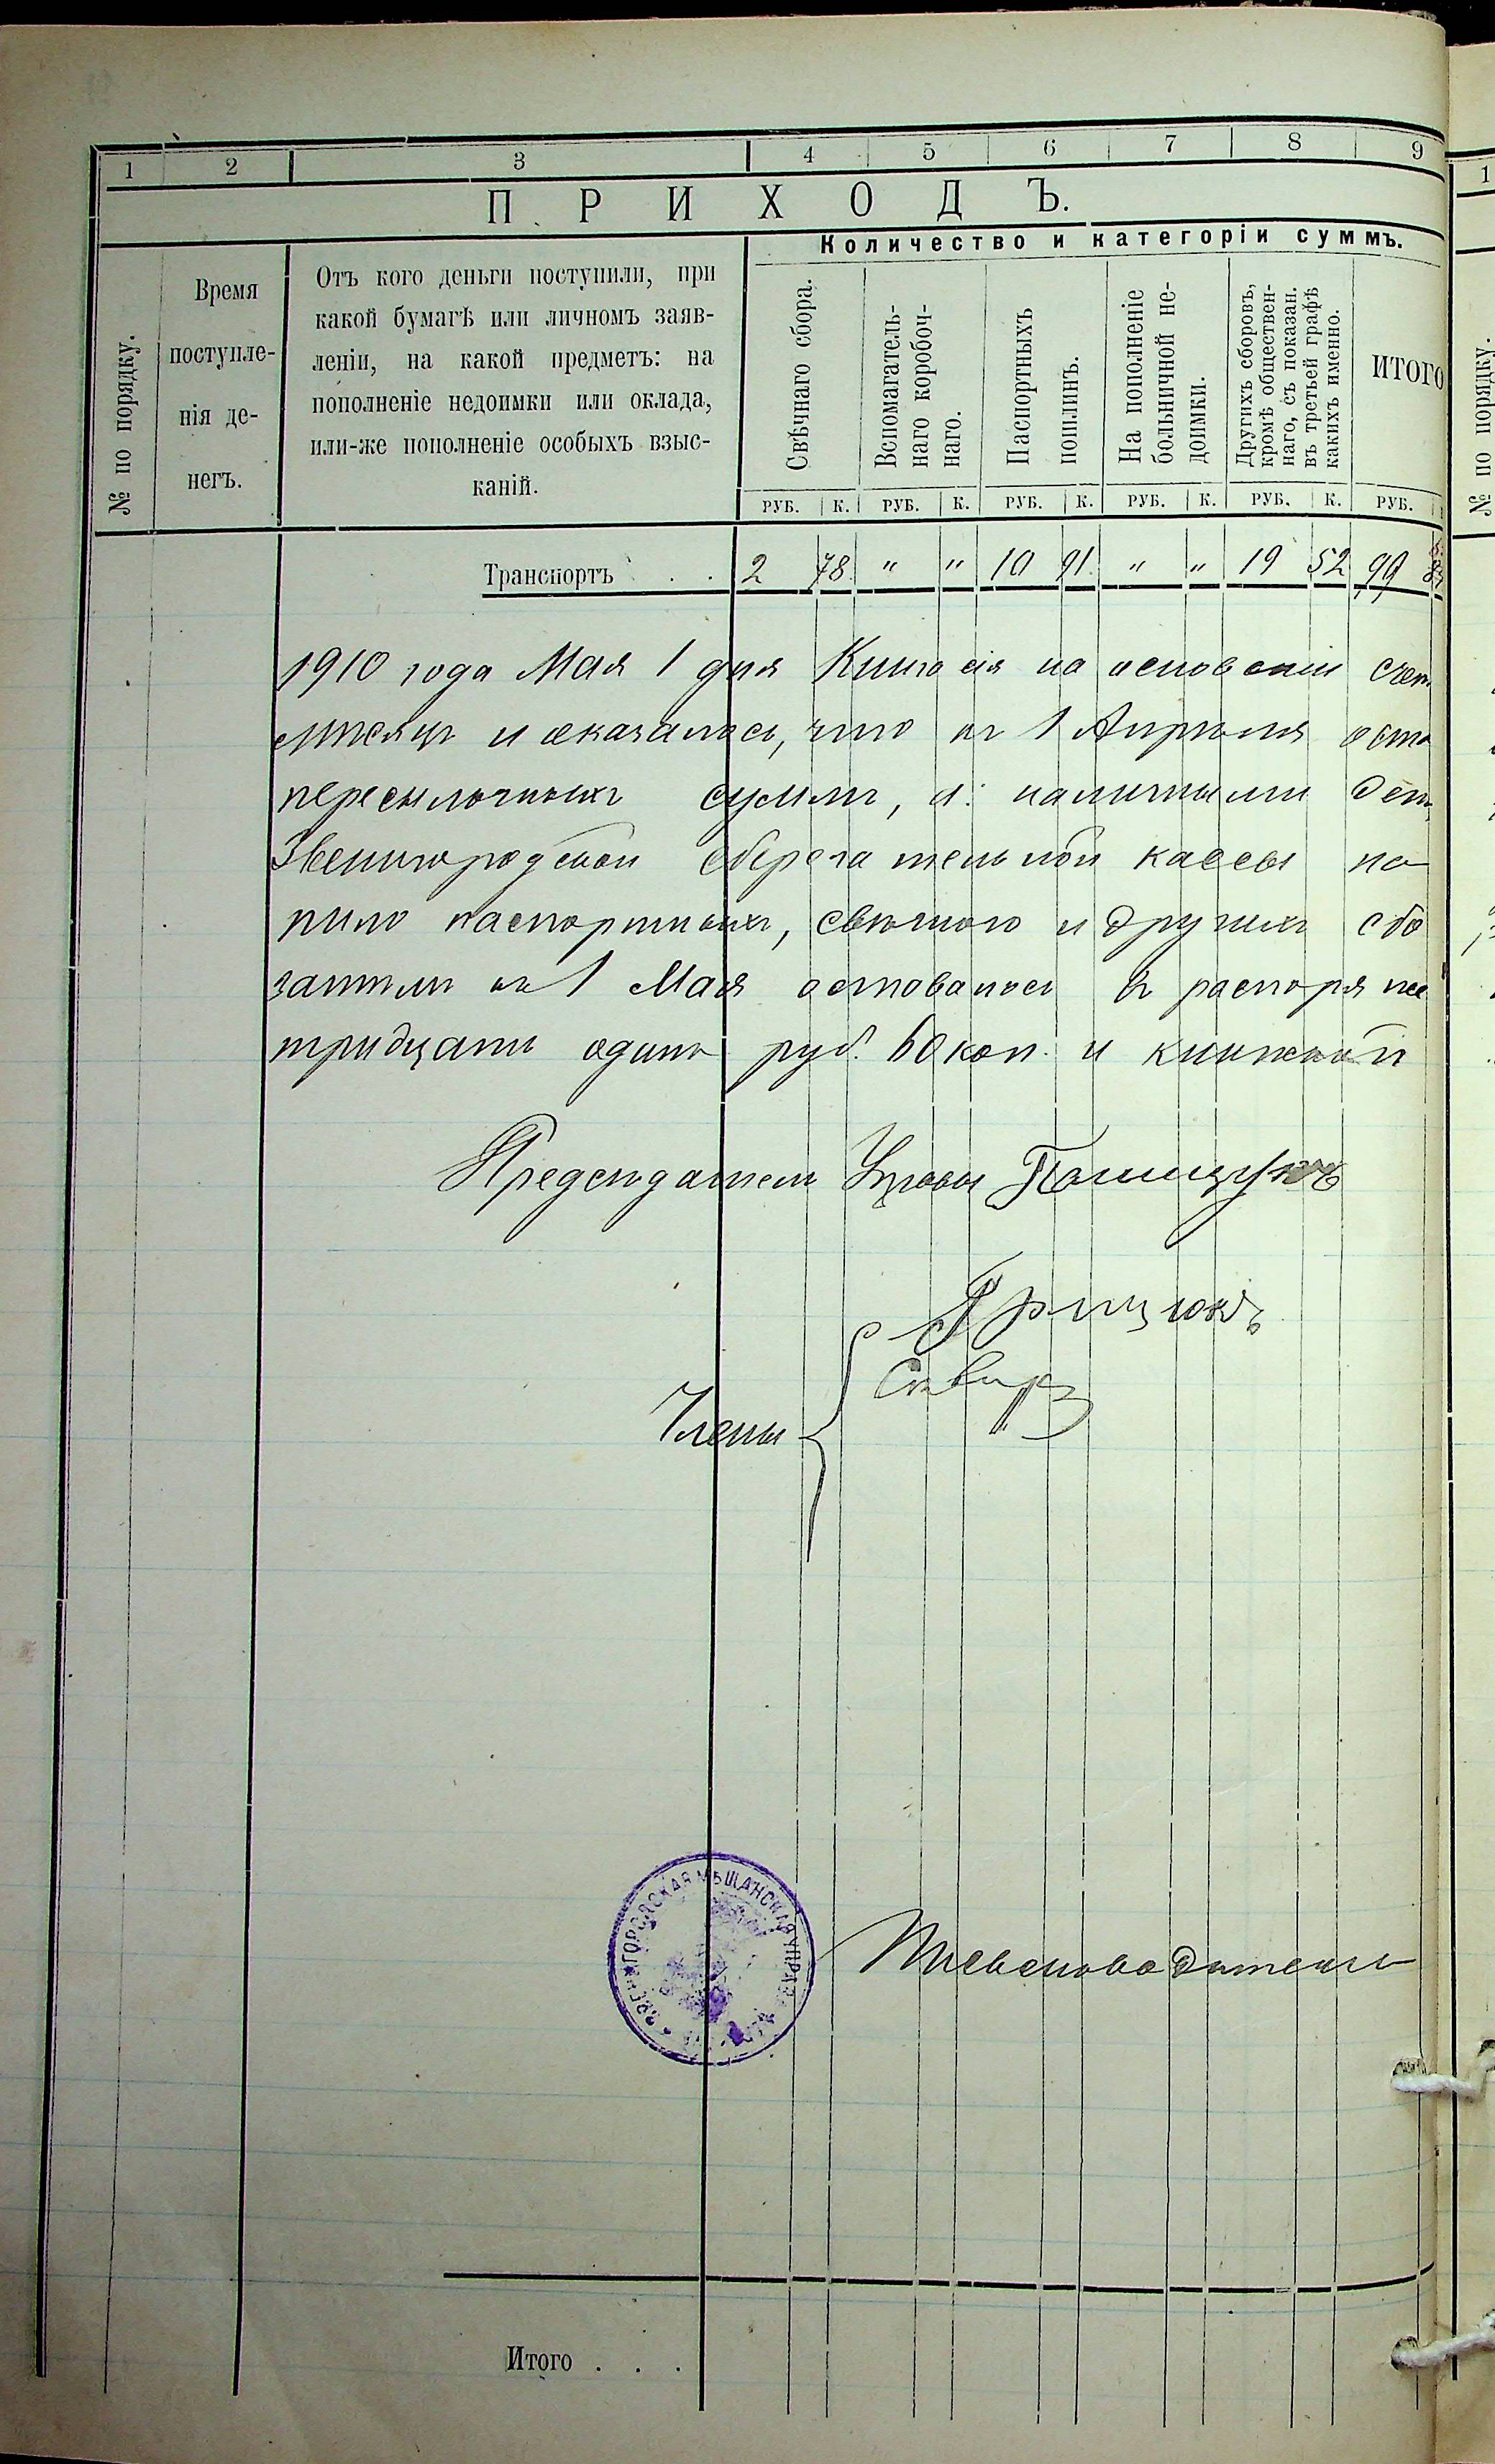 1 2 3 4 5 6 7 8 9
ПРИХОДЪ.
Количество и категоріи суммъ.
№ по порядку.
Время поступле-
нія де-
негъ.
Отъ кого деньги поступили, при
какой бумагѣ или личномъ заяв-
леніи, на какой предметъ: на
пополненіе недоимки или оклада,
или-же пополненіе особыхъ взыс-
каній.
Свѣчнаго сбора.
Вспомагатель-
наго коробоч-
наго.
Паспортныхъ
пошлинъ.
На пополненіе
больничной не-
доимки.
Другихъ сборовъ,
кромѣ обществен-
наго, съ показан.
въ третьей графѣ
какихъ именно.
ИТОГО
РУБ. К. РУБ. К. РУБ. К. РУБ. К. РУБ. К. РУБ.
Транспортъ . . 2 78 " " 10 91 " " 19 52 99
1910 года Мая 1 дня Книга сія на основаніи
мѣсяцъ и оказалось, что къ 1 Апрѣля оста
пересылочныхъ суммъ, а: наличными
Звенигородской сберегательной кассы на
пило паспортныхъ, свѣчного и другихъ сбо
затѣмъ къ 1 Мая оставалось въ распоряже
тридцать одинъ руб. 60 коп. и книжкой
Предсѣдатель Управы
Грицюкъ
Члены
ЗВЕНИГОРОДСКАЯ МѢЩАНСКАЯ УПРАВА
Письмоводитель
Итого . . .
1
№ по порядку.